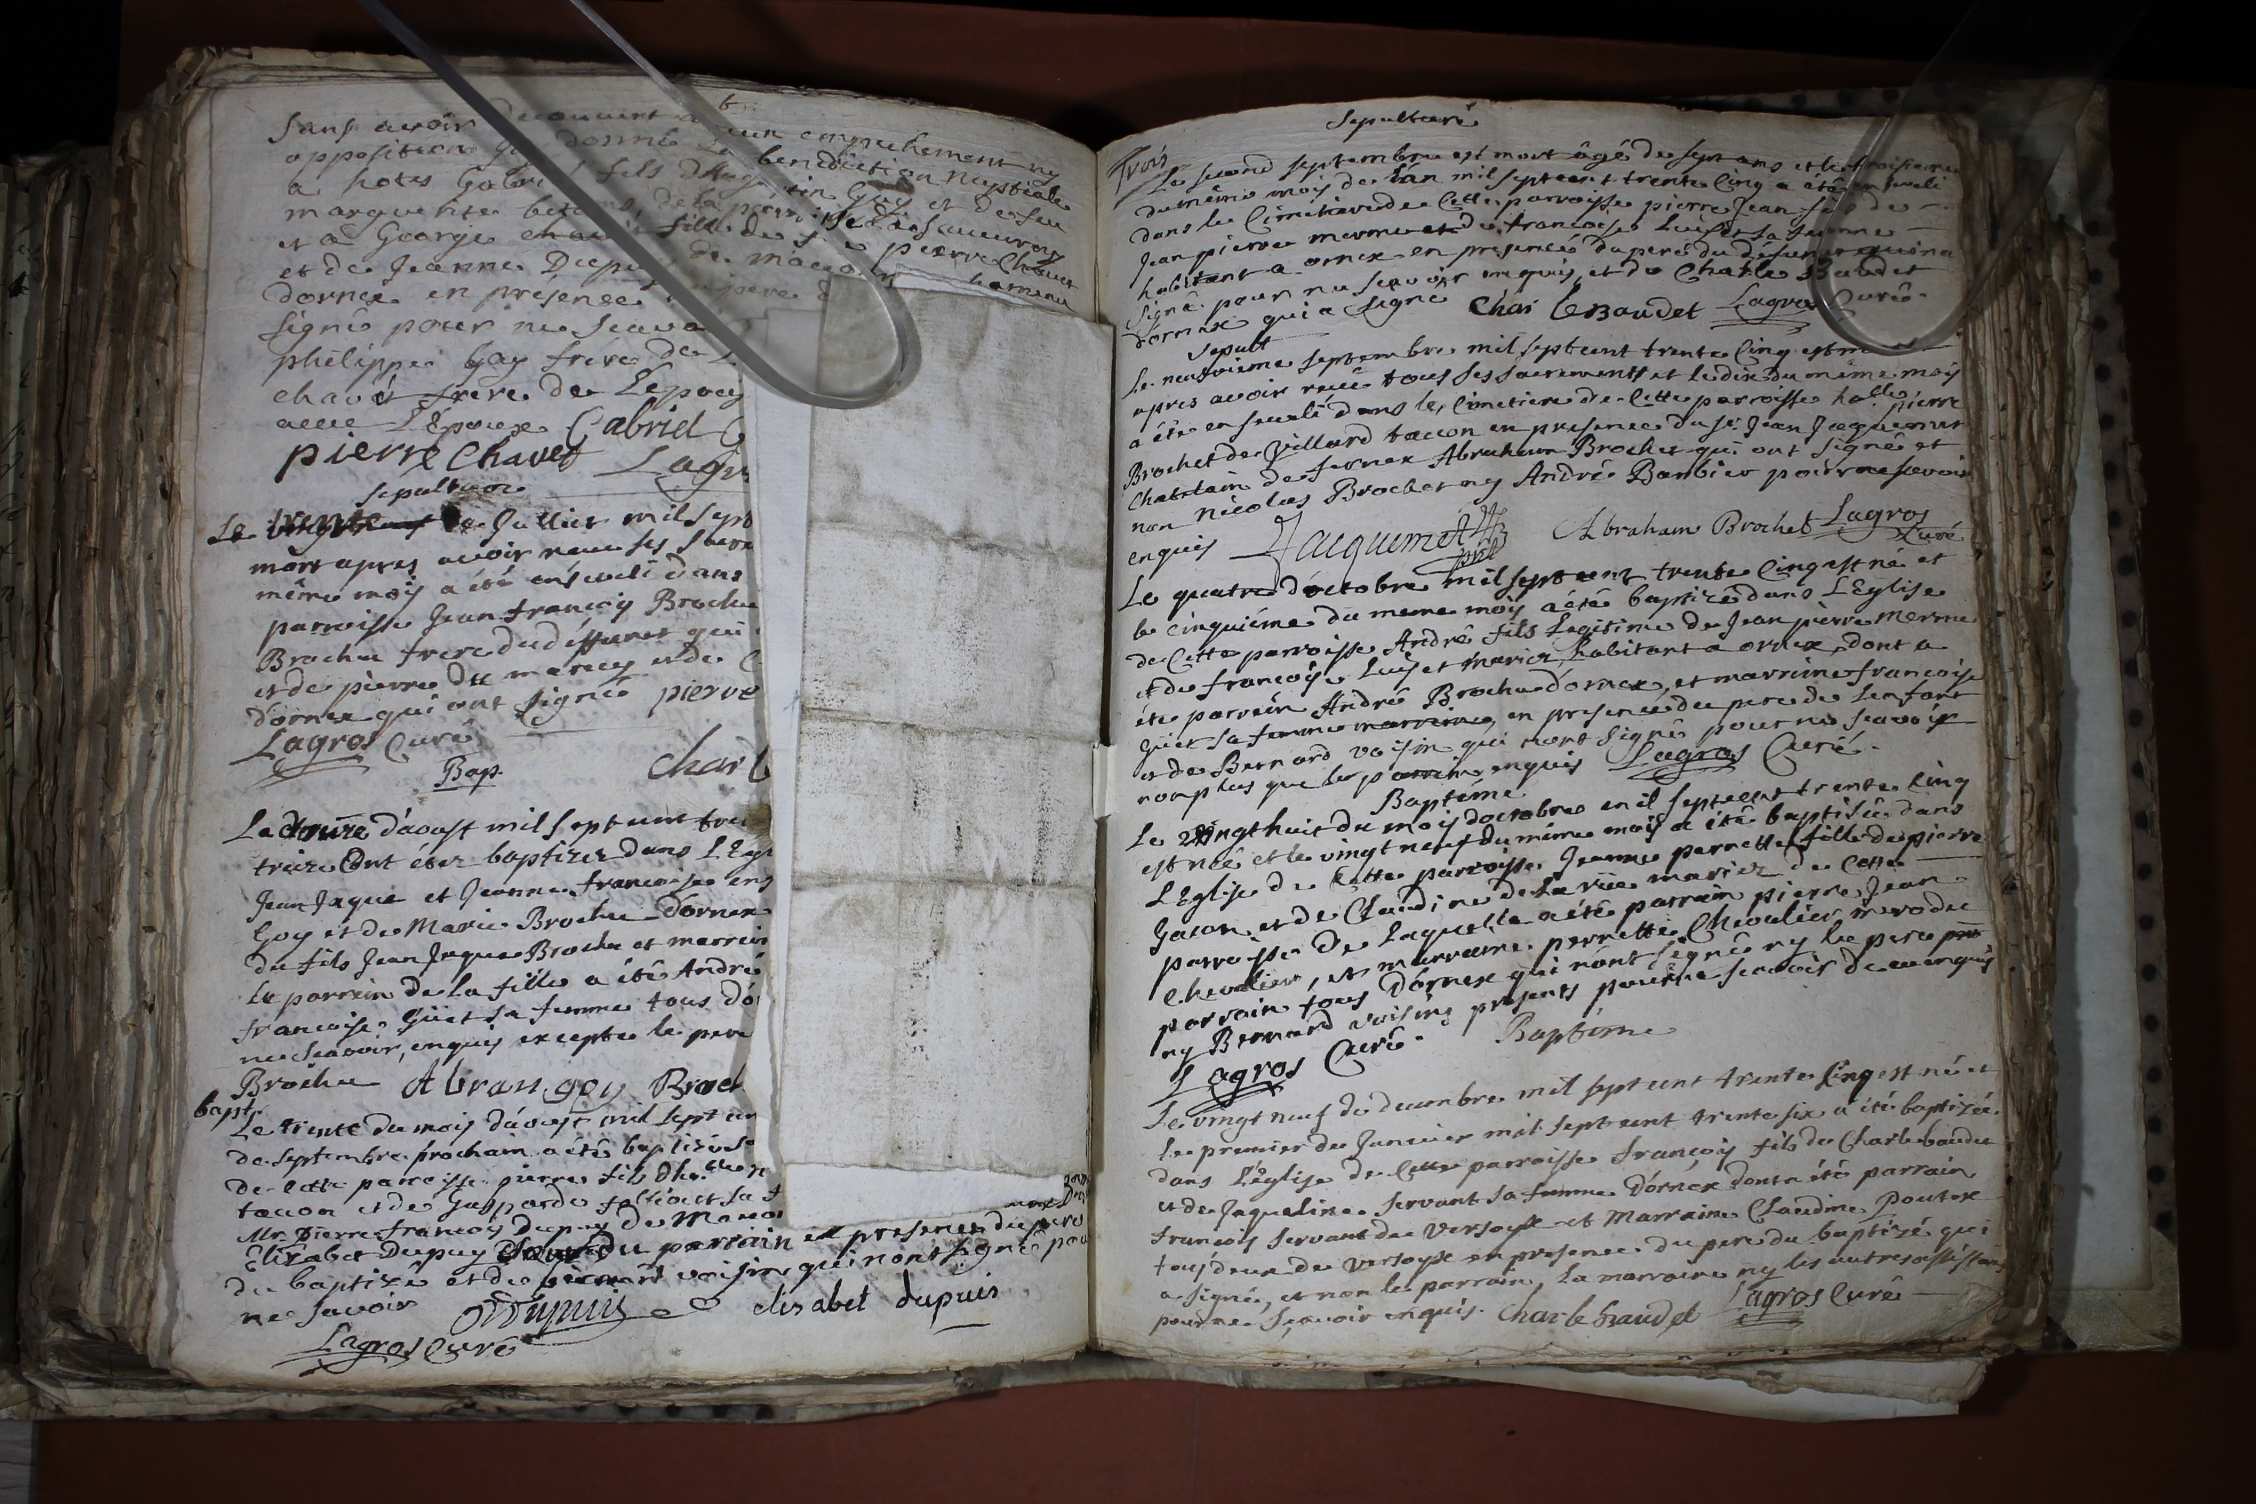 Sans avoir decouvert aucun empechement ny
opposition j'ay donné la benediction nuptiale
a hotes Gabriel fils d'Augustin Goy et de feu
marguerite de la parroisse de Sauverny
et a Georgie chavet fille de feu pierre Chavet
et de Jeanne Depuy de macon hameau
dornex en présence du pere
signé pour ne scavoi
philippe Goy frère de L
chavet frere de L'epouse
avec L'Epoux Gabriel G
pierre Chavet Lagr
sepulture
Le de Juillet mil sept
mort apres avoir receu ses Sacr
même mois a été enseveli dans
parroisse Jean françois Brochu
Brochu frere du deffunct qui
et de pierre de marcy et de C
dornex qui ont signé pierre
Lagros Curé
Charl
Bap.
Le douze d'aoust mil sept cent tre
treize Ont étéz baptizez dans L'Egl
Jean Jaque et Jeanne françoise ens
Goy et de Marie Brochu dornex
du fils Jean Jaque Brochu et marrein
Le parrein de la fille a été André
françoise Güet sa femme tous d'o
ne Scavoir, enquis excepte le pere
Brochu Abran goy Broch
bapt.
Le trente du mois d'aoust mil sept cen
de septembre prochain a été baptizé
de cette parroisse pierre fils
tacon et de Gasparde et sa f
Mr. Pierre françois Dupuy de Macon
Elizabet Dupuy du parrain en presence du pere
du baptizé et de bernard voisin qui n'ont signé pou
ne Savoir Dupuis elisabet dupuis
Lagros Curé
Sepulture
Trois
Le second septembre est mort âgé de sept ans et le troisieme
du même mois de l'an mil sept cent trente Cinq a été enseveli
dans le Cimetiere de Cette parroisse pierre Jean fils de
Jean pierre merme et de françoise Luiset sa femme
habitant a ornex en presence du pere du défunct qui n'a
signé pour ne scavoir enquis, et de Charle Baudet
d'ornex qui a signé Char le Baudet Lagros Curé.
Sepult
Le neufvieme septembre mil sept cent trente Cinq est mort
apres avoir receu tous ses sacrements et le dix du même mois
a été enseveli dans le Cimetiere de Cette parroisse pierre
Brochet de Villard tacon en presence du sr. Jean Jacquemet
Chatelain de fernex Abraham Brochet qui ont signé et
non Nicolas Brochet ny André Barbier pour ne scavoir
enquis Jacquemet Abraham Brochet Lagros
Curé
Le quatre d'octobre mil sept cent trente Cinq est né et
le cinquième du meme mois a été baptizé dans L'Eglise
de Cette parroisse André fils Legitime de Jean pierre Merme
et de françoise Luiset mariez, habitant a ornex, dont a
été parrein André Brochu d'ornex, et marreine françoise
Güet sa femme en presence du pere de L'enfant
et de Bernard voisin qui n'ont signé pour ne scavoir
non plus que le parrein enquis Lagros Curé.
Baptéme
Le vingt huit du mois d'octobre mil sept cent trente Cinq
est née et le vingt neuf du même mois a été baptisée dans
L'Eglise de Cette parroisse Jeanne pernette fille de pierre
Jacon et de Claudine de la rüe mariez de Cette
parroisse de Laquelle a été parrain pierre Jean
Chevalier, et marraine pernette Chevalier
parrain tous d'ornex qui n'ont signé ny le pere
ny Bernard voisins presents pour ne scavoir de ce enquis
Lagros Curé. Baptéme
Le vingt neuf de decembre mil sept cent trente Cinq est né et
le premier de Janvier mil sept cent trente six a été baptizé
dans L'Eglise de Cette parroisse françois fils de Charle baudet
et de Jaqueline servant sa femme d'ornex dont a été parrain
françois servant de Versoye et Marraine Claudine Poutex
tous deux de Versoye en presence du pere du baptizé qui
a signé, et non le parrain, la marraine ny les autres assistans
pour ne Sçavoir enquis. Charle baudet Lagros Curé